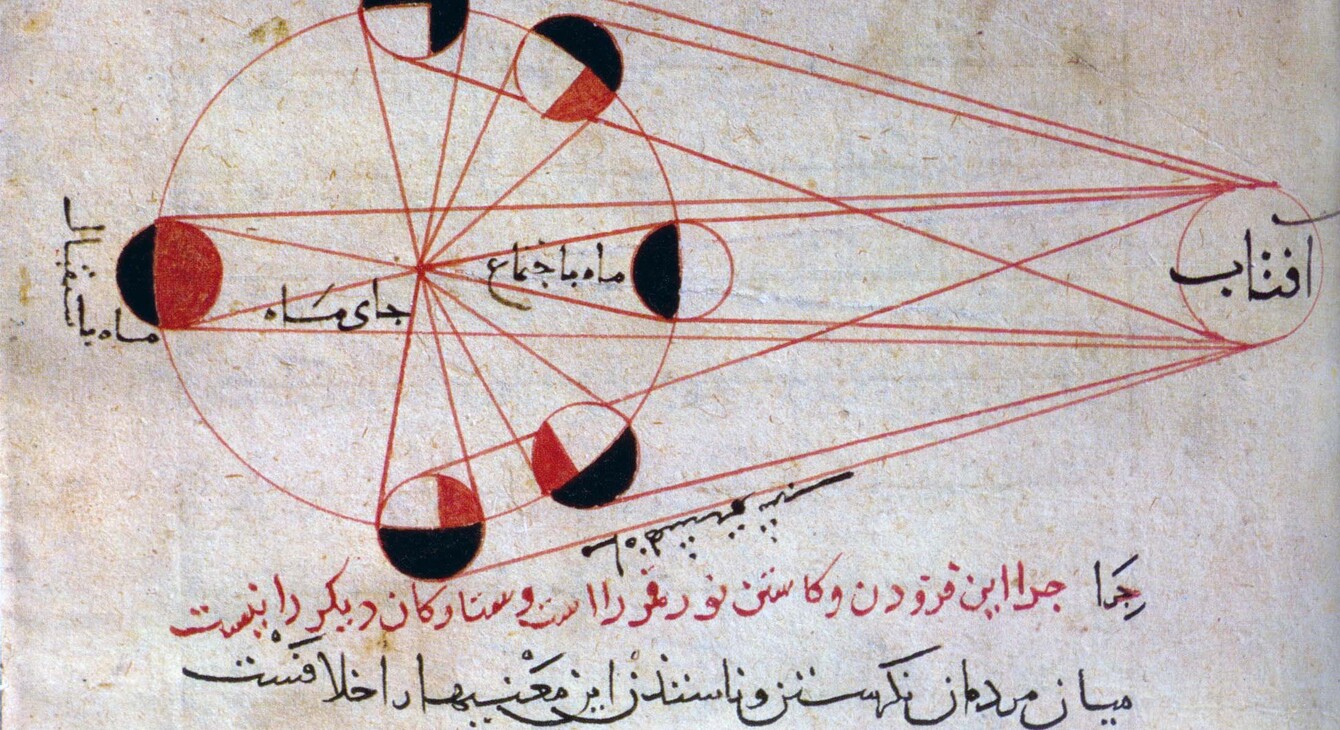 افتاب
ماه باجتماع
جای ماه
ماه باستقبال
چرا جرا این فزودن و کاستن نور قمر را است و ستارکان دیکر را نیست
میان مردمان نکرستن و ناستدن این معنیها را اختلافست